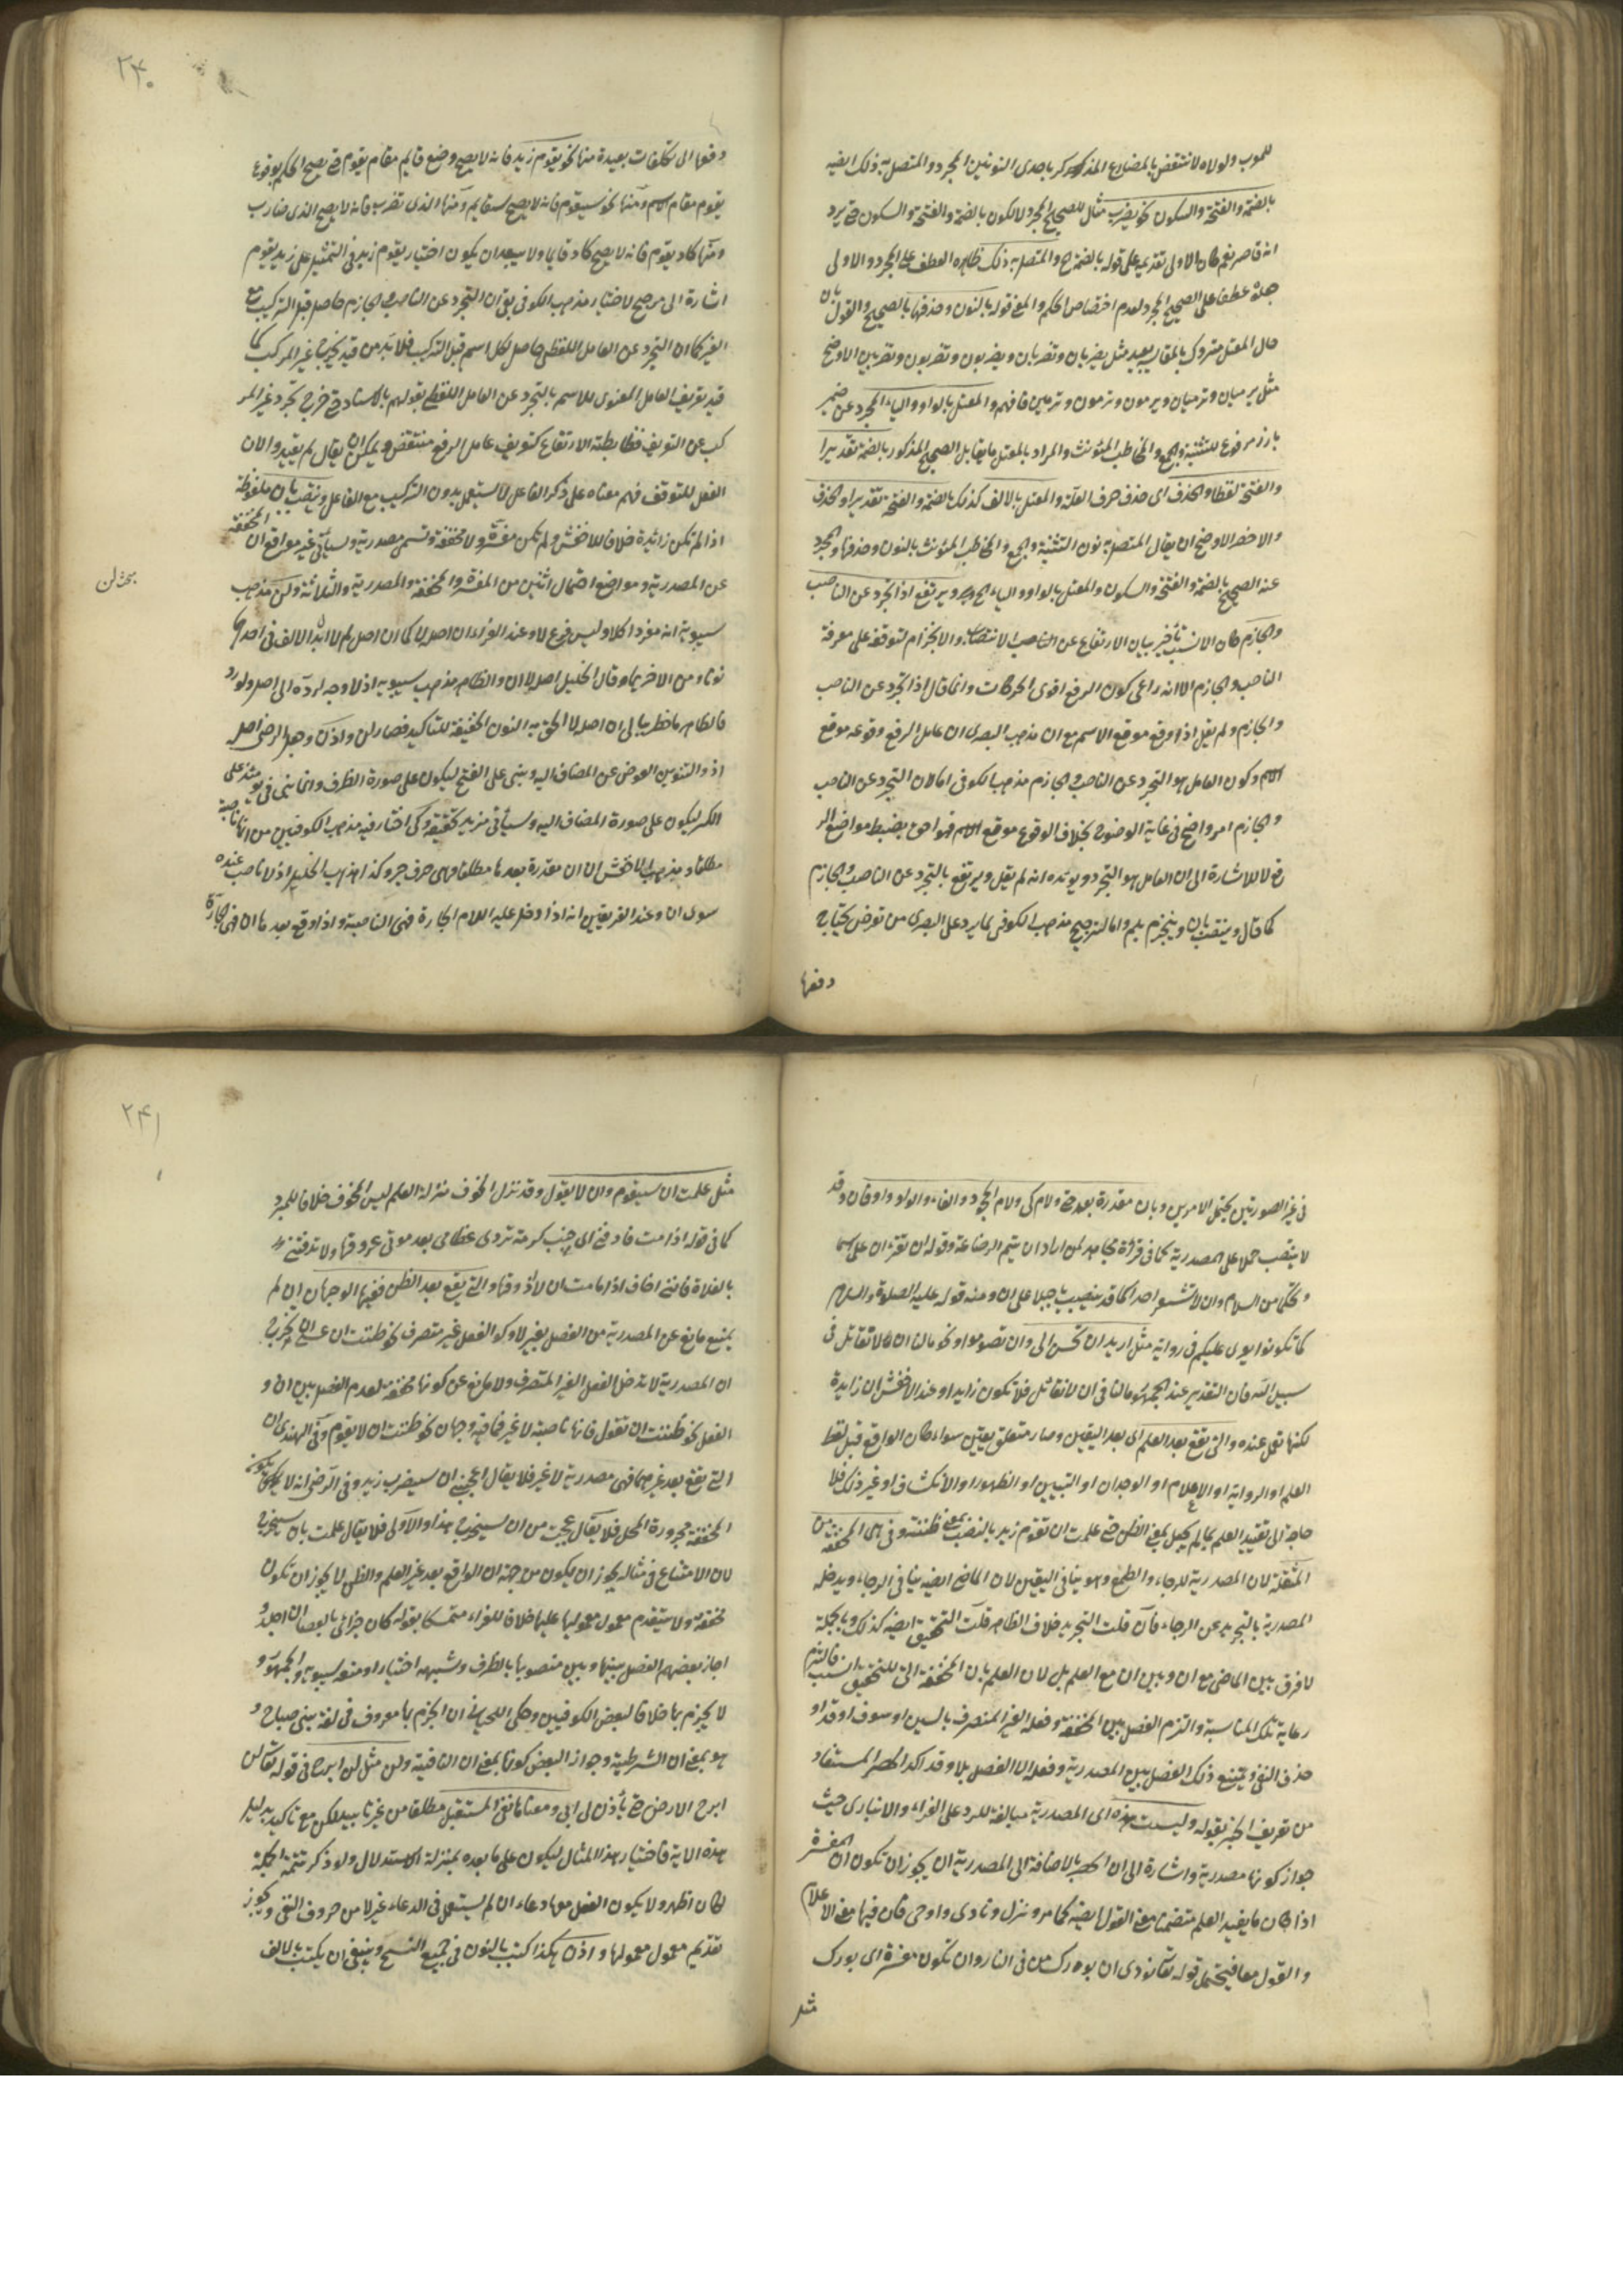 للمعرب ولولاه لانتقض بالمضارع المذكور كر باحدى النونين المجرد والمتصل به ذلك ايضه
بالضمة والفتحة والسكون نحو يضرب مثال للصحيح المجرد لا لكون بالضمة والفتحة والسكون حتى يرد
انه قاصر نعم كان الاولى تقديمه على قوله بالضمة ح والمتصل به ذلك ظاهره العطف على المجرد والاولى
جعله عطفا على الصحيح المجرد لعدم اختصاص الحكم والمعنى قوله بالنون وحذفها بالصحيح والقول بان
حال المعتل متروك بالمقايسة بعيد مثل يضربان وتضربان ويضربون وتضربون وتضربين الاوضح
مثل يرميان وترميان ويرمون وترمون وترمين فافهم والمعتل بالواو والياء المجرد عن ضمير
بارز مرفوع للتثنية والجمع والمخاطب المؤنث والمراد بالمعتل ما يقابل الصحيح المذكور بالضمة تقديرا
والفتحة لفظا والحذف اى حذف حرف العلة والمعتل بالالف كذلك بالضمة والفتحة تقديرا والحذف
والاخصر الاوضح ان يقال المتصل به نون التثنية والجمع والمخاطب المؤنث بالنون وحذفها والمجرد
عنه الصحيح بالضمة والفتحة والسكون والمعتل بالواو والياء الخ ويرتفع اذا تجرد عن الناصب
والجازم كان الانسب تأخير بيان الارتفاع عن الناصب الانتصاب والانجزام لتوقفه على معرفة
الناصب والجازم الا انه راعى كون الرفع اقوى الحركات وانما قال اذا تجرد عن الناصب
والجازم ولم يقل اذا وقع موقع الاسم مع ان مذهب البصرى ان عامل الرفع وقوعه موقع
الاسم وكون العامل هو التجرد عن الناصب والجازم مذهب الكوفى اما لان التجرد عن الناصب
والجازم امر واضح فى غاية الوضوح بخلاف الوقوع موقع الاسم فهو احق بضبط مواضع الر
فع لا للاشارة الى ان العامل هو التجرد ويؤيده انه لم يقل ويرتفع بالتجرد عن الناصب والجازم
كما قال وينتصب بان وينجزم بلم واما لترجيح مذهب الكوفى بما يرد على البصرى من تعرض يحتاج
دفعها
٢٤٠
دفعها الى تكلفات بعيدة منها نحو يقوم زيد فانه لا يصح وضع قائم مقام يقوم حتى يصح الحكم بوقوع
يقوم مقام الاسم ومنها نحو سيقوم فانه لا يصح سقايم ومنها الذى تضرب فانه لا يصح الذى ضارب
ومنها كاد يقوم فانه لا يصح كاد قايما ولا يبعد ان يكون اختيار يقوم زيد فى التمثيل على زيد يقوم
اشارة الى مرجح لاختيار مذهب الكوفى بقى ان التجرد عن الناصب والجازم حاصل قبل التركيب مع
الغير كما ان التجرد عن العامل اللفظى حاصل لكل اسم قبل التركيب فلا بد من قيد يخرج غير المركب كما
قيد تعريف العامل المعنوى للاسم بالتجرد عن العامل اللفظى بقولهم بالاسناد حتى خرج تجرد غير المر
كب عن التعريف فضابطته الارتفاع كتعريف عامل الرفع منتقض ويمكن ان يقال لم يقيد والان
الفعل للتوقف فهم معناه على ذكر الفاعل لا يستعمل بدون التركيب مع الفاعل وينتصب بان ملفوظة
اذا لم تكن زائدة خلافا للاخفش ولم تكن مفسرة ولا مخففة وتسمى مصدرية وسيأتى غير مواقع ان المخففة
عن المصدرية ومواضع احتمال اثنين من المفسرة والمخففة والمصدرية والثلاثة ولن مذهب
سيبويه انه مفرد اكلا وليس فرع لا وعند الفراء ان اصل لن لا كما ان اصل لم لا ابدل الالف فى احدهما
نونا ومن الاخر ميما وقال الخليل اصله لا ان والظاهر مذهب سيبويه اذ لا وجه لرده الى اصل ولورد
فالظاهر ما خطر ببالى ان اصله لا الحق به النون الخفيفة للتاكيد فصار لن واذن وجعل الرضى اصله
اذ والتنوين العوض عن المضاف اليه وبنى على الفتح ليكون على صورة الظرف وانما بنى فى يومئذ على
الكسر ليكون على صورة المضاف اليه وسيأتى مزيد تحقيقه وكى اختار فيه مذهب الكوفيين من انها ناصبة
مطلقا ومذهب الاخفش ان ان مقدرة بعدها مطلقا وهى حرف جر وكذا مذهب الخليل اذ لا ناصب عنده
سوى ان وعند الفريقين انه اذا دخل عليه اللام الجارة فهى الناصبة واذا وقع بعدها ان فهى جارة
بحث لن
فى غير الصورتين يحتمل الامرين وبان مقدرة بعد حتى ولام كى ولام الجحود والفاء والواو واو فان وقد
لا ينصب حملا على المصدرية كما فى قراءة مجاهد لمن اراد ان يتم الرضاعة وقوله ان تقرآن على اسما
ويحكما من السلام وان لا تشعرا احدا كما قد ينصب بما حملا على ان ومنه قوله عليه الصلوة والسلام
كما تكونوا يولى عليكم فى رواية مثل اريد ان تحسن الى وان تصوموا ونحو ما لنا ان لا نقاتل فى
سبيل الله فان التقدير عند الجمهور ما لنا فى ان لا نقاتل فلا تكون زايدة وعند الاخفش ان زايدة
لكنها تعمل عنده والتى تقع بعد العلم اى بعد اليقين وصار متعلق يقين سواء كان الواقع قبل لفظ
العلم او الرواية او الاعلام او الوجدان او التبيين او الظهور او الانكشاف او غير ذلك فلا
حاجة الى تقييد العلم بما لم يجعل بمعنى الظن حتى علمت ان تقوم زيد بالنصب بمعنى ظننته وفى هى المخففة من
المثقلة لان المصدرية للرجاء والطمع وهو ينافى اليقين لان الماضى ايضه ينافى الرجاء ويدخله
المصدرية بالتجريد عن الرجاء فان قلت التجريد خلاف الظاهر قلت التحقيق ايضه كذلك وبالجملة
لا فرق بين الماضى مع ان وبين ان مع العلم بل لان العلم بان المخففة التى للتحقيق انسب فالتزم
رعاية تلك المناسبة والتزم الفصل بين المخففة وفعله الغير المتصرف بالسين او سوف او قد او
حذف النفى ويمتنع ذلك الفصل بين المصدرية وفعله الا الفصل بلا وقد اكد الحصر المستفاد
من تعريف الخبر بقوله وليست هذه اى المصدرية مبالغة للرد على الفراء والانبارى حيث
جواز كونها مصدرية واشارة الى ان الحصر بالاضافة الى المصدرية اذ يجوز ان تكون ان المفسرة
اذا كان ما يفيد العلم متضمنا معنى القول ايضه كما مر ونزل ونادى واوحى فان فيها معنى الاعلام
والقول معا فيحتمل قوله تعالى نودى ان بورك من فى النار وان تكون مفسرة اى بورك
مثل
٢٤١
مثل علمت ان سيقوم وان لا يقول وقد نزل الخوف منزلة العلم ليس الخوف خلافا للمبرد
كما فى قوله اذا مت فادفنى الى جنب كرمة تروى عظامى بعد موتى عروقها ولا تدفننى
بالفلاة فاننى اخاف اذا ما مت ان لا اذوقها والتى يقع بعد الظن ففيها الوجهان ان لم
يمنع مانع عن المصدرية من الفصل بغير لا وكو الفعل غير متصرف نحو ظننت ان عسى ان يخرج
ان المصدرية لا تدخل الفعل الغير المتصرف ولا مانع عن كونها مخففة لعدم الفصل بين ان و
الفعل نحو ظننت ان تقول فانها ناصبة لا غير فما فيه وجهان نحو ظننت ان لا يقوم وفى الهندى ان
التى يقع بعد غيرهما فهى مصدرية لا غير فلا يقال اعجبنى ان سيضرب زيد وفى الرضى انه لا يمكن بكون
المخففة مجرورة المحل فلا يقال عجبت من ان سيخرج هذا والاولى فلا يقال علمت بان سيخرج
لان الامتناع فى مثاله يجوز ان يكون من جهة ان الواقع بعد غير العلم والظن لا يجوز ان تكون
مخففة ولا يتقدم معمول معمولها عليها خلافا للفراء متمسكا بقوله كان جزائى بالعصا ان اجلد و
اجاز بعضهم الفصل بينها وبين منصوبها بالظرف وشبهه اختيارا ومنعه سيبويه والجمهور و
لا يجزم بها خلافا لبعض الكوفيين وحكى اللحيانى ان الجزم بها معروف فى لغة بنى صباح و
هو بمعنى ان الشرطية وجواز البعض كونها بمعنى ان النافية ولن مثل لن ابرح فى قوله تعالى لن
ابرح الارض حتى يأذن لى ابى ومعناها نفى المستقبل مطلقا من غير تابيد لكن مع تاكيد بدليل
هذه الاية فاختيار هذا المثال ليكون على ما بعده بمنزلة الاستدلال ولو ذكر تتمة الجملة
لكان اظهر ولا يكون الفعل معها دعاء ان لم يستعمل فى الدعاء غير لا من حروف النفى ويجوز
تقديم معمول معمولها واذن هكذا كتب بالنون فى جميع النسخ وينبغى ان يكتب بالالف